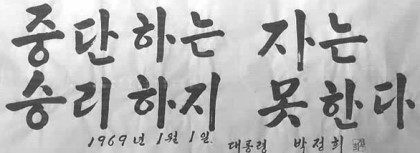 중단하는 자는
승리하지 못한다
1969년 1월 1일. 대통령 박정희